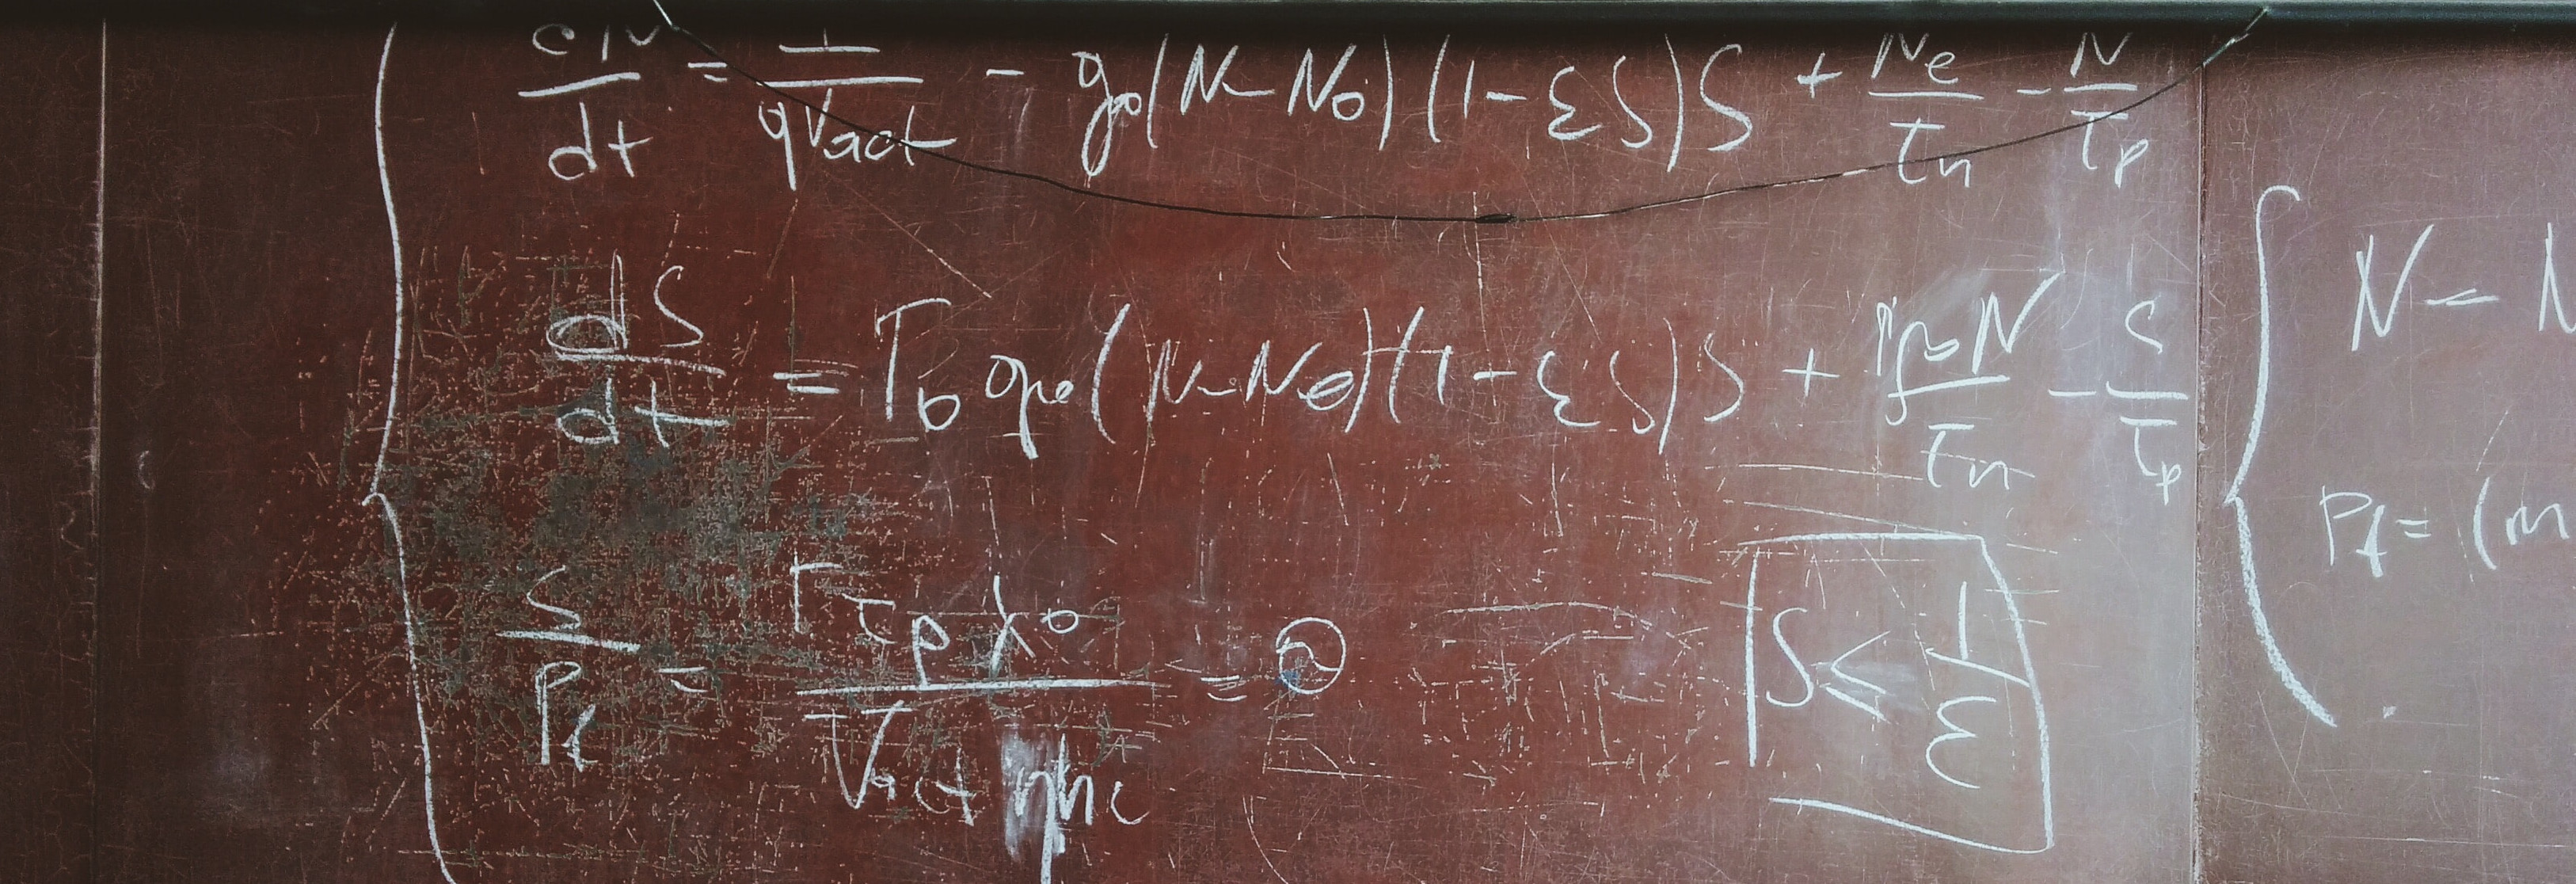 dN/dt = I/(qVact) - g0(N-N0)(1-εS)S + Ne/τn - N/τp
dS/dt = Γ0 g0(N-N0)(1-εS)S + ΓβN/τn - S/τp
S/Pf = Γτpλ0/(Vact ηhc) = ϑ
S ≤ 1/ε
N - N
Pf = (m